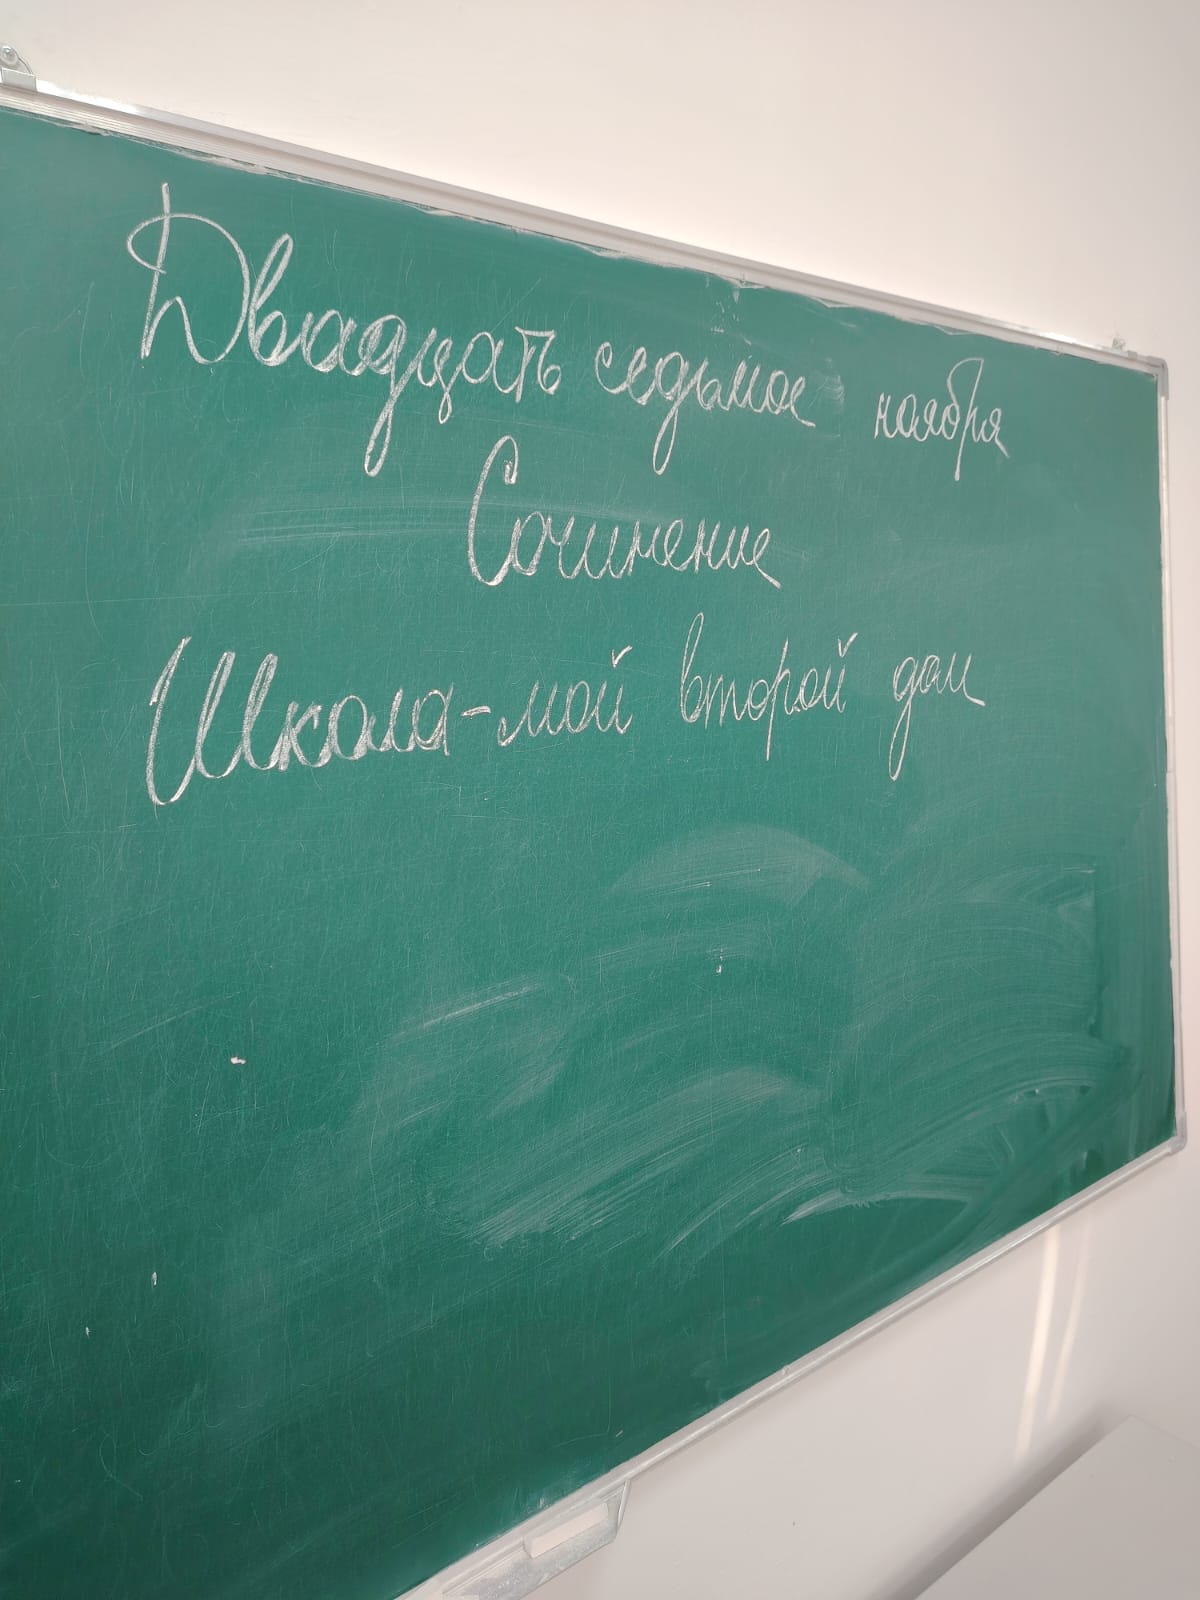 Двадцать седьмое ноября
Сочинение
Школа-мой второй дом